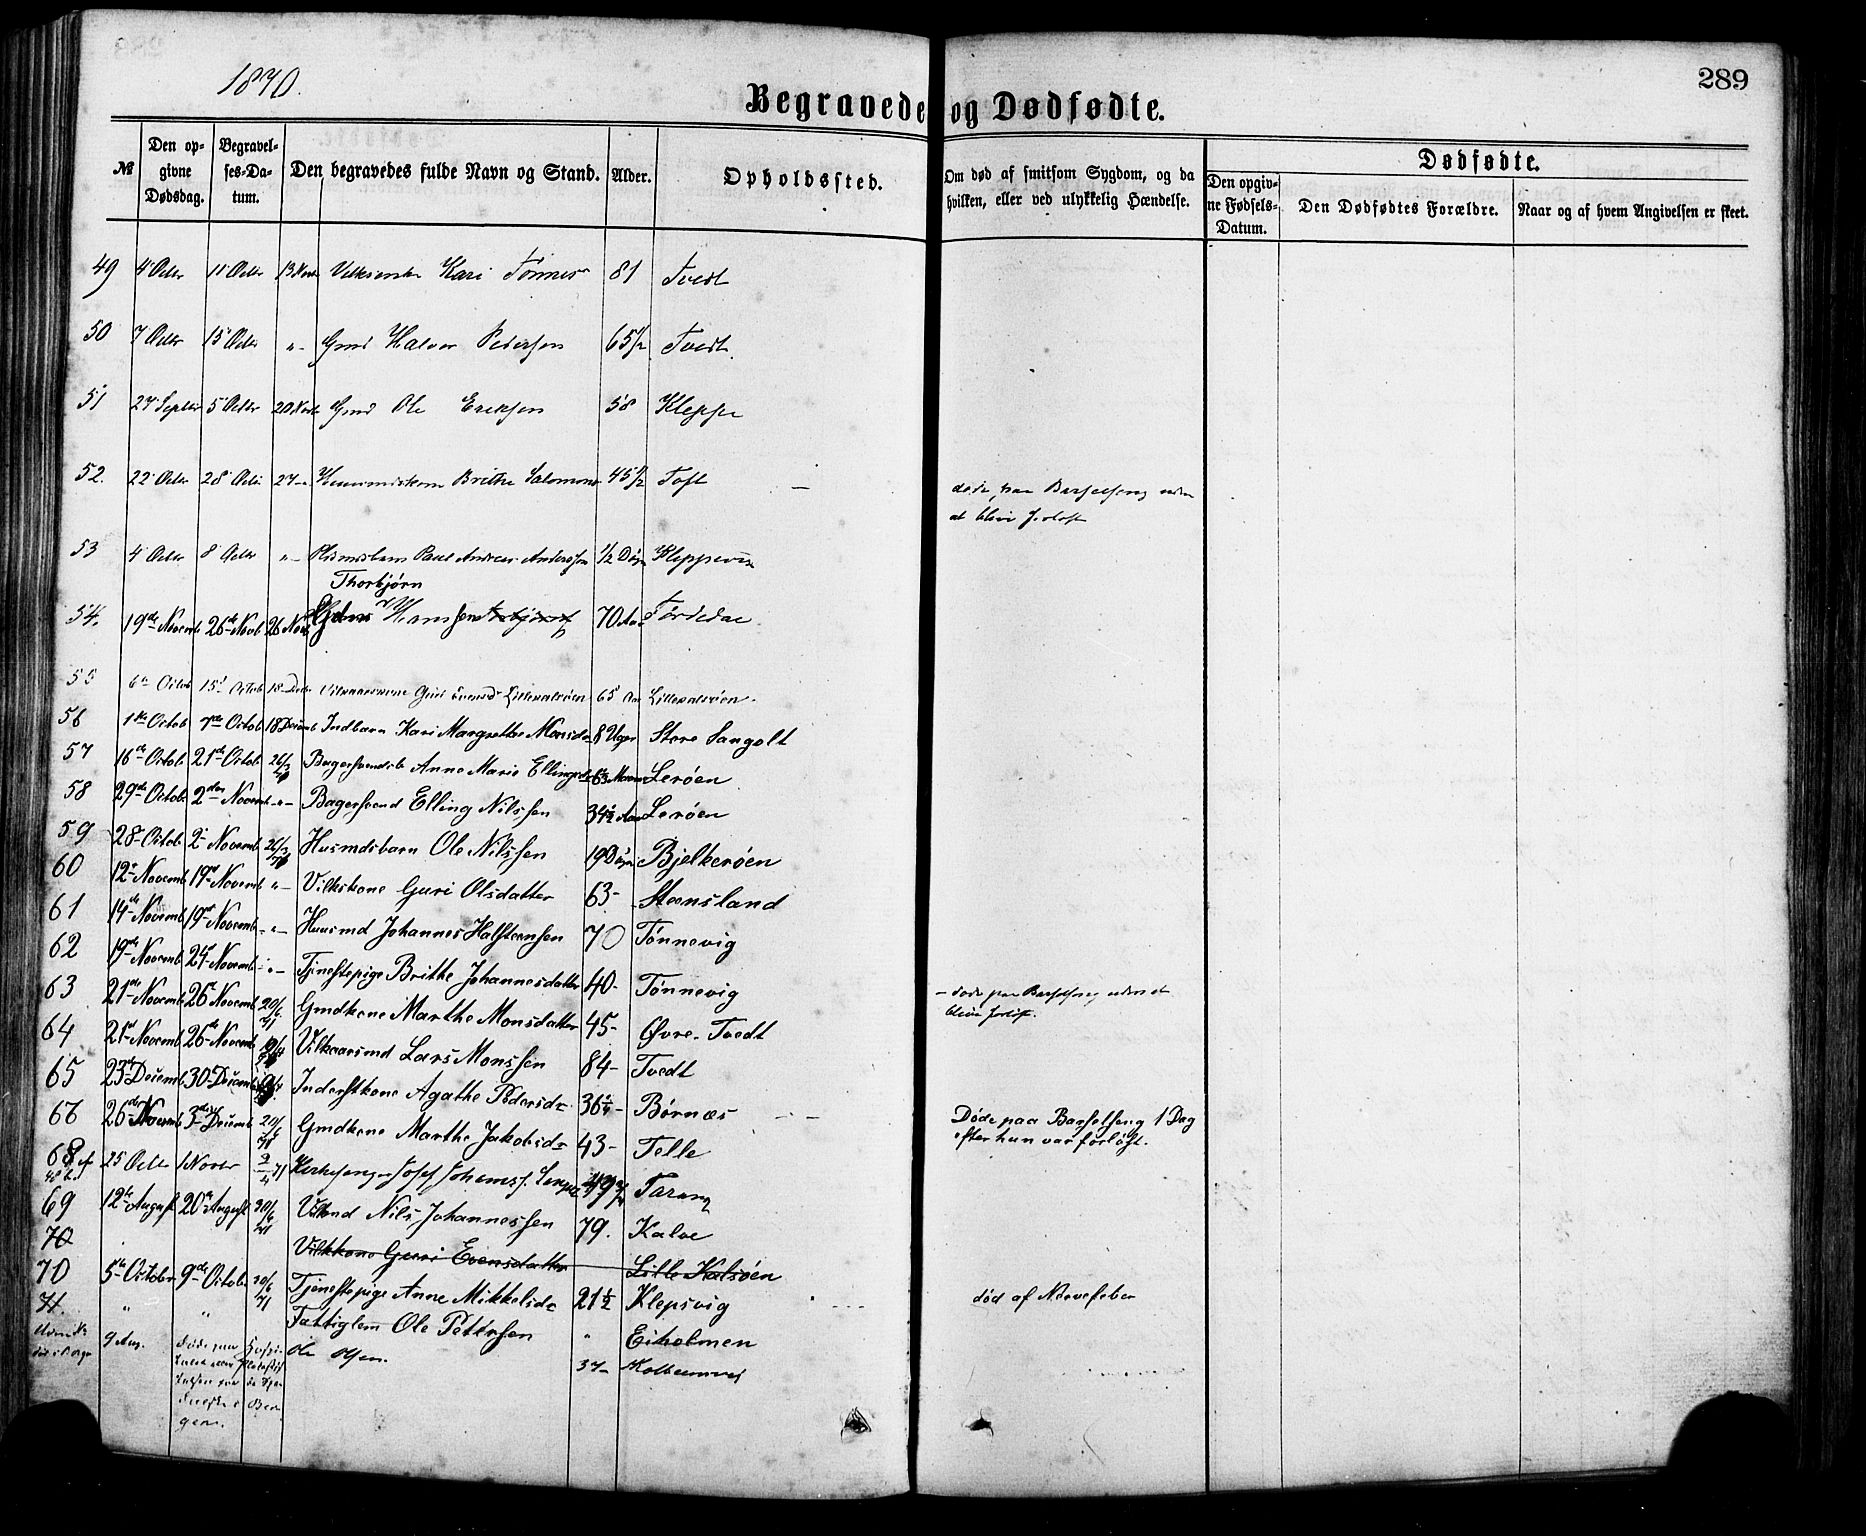 1870.
289
Begravede og Dødfødte.
№ Den opgivne Dødsdag. Begravelses-Datum. Den begravedes fulde Navn og Stand. Alder. Opholdssted. Om død af smitsom Sygdom, og da hvilken, eller ved ulykkelig Hændelse. Dødfødte. Den opgivne Fødsels-Datum. Den Dødfødtes Forældre. Naar og af hvem Angivelsen er skeet.
49 4 Octbr 11 Octbr 13 Novb Kari Tønnes 81 Tvedt
50 7 Octbr 15 Octbr " Gmd Halvor Pedersen 65 1/2 Tvedt.
51 27 Septbr 5 Octbr 20 Novb Gmd Ole Eriksen 58 Kleppe
52. 22 Octbr 28 Octbr 27 - Brithe Salomons 45 1/2 Toft — døde paa Barselseng uden
at blive forløst
53 4 Octbr 8 Octbr " Paul Andreas Anderssen 1/2 Døgn
Thorbjørn
54. 19de Novemb 26de Novb 26 Novb Hanssen 70 Aar
55 6te Octob 15d Octob 18 Decb Guri Evensd Lillekalsøen 65 Aar Lillekalsøen.
56 1ste Octob 7de Octob 18 Decemb Indbarn Kari Margrethe Monsdr 8 Uger Store Sangolt
57 16de Octob 21de Octob Anne Marie Ellingsdr Lerøen
58 29de Octob 2den Novemb -"- Bagersvend Elling Nilssen 34 1/2 Aar Lerøen
59 28 Octob 2 Novemb Husmdsbarn Ole Nilssen 19 Døgn Bjelkerøen
60 12 Novemb 19 Novemb "- Vilkskone Guri Olsdatter 63- Steensland
61 14de Novemb 19 Novemb -"- Huusmd Johannes Halstensen 70 Tønnevig
62 19de Novemb 24 Novemb -"- Tjenestepige Brithe Johannesdatter 40- Tønnevig
63 21de Novemb 26 Novemb 20/6 71 Gmdkone Marthe Monsdatter 45- Øvre Tvedt — døde paa Barselseng uden at
blive forløst.
64 21 Novemb 26de Novemb Vilkaarsmd Lars Monssen 84- Tvedt
65 23 Decemb 30 Decemb Inderstkone Agathe Pedersdr 36 Børnæs
66 26de Novemb 3die Decemb 20/6 71 Gmdkone Marthe Jakobsdr 43- Telle Døde paa Barselseng 1 Dag
efter hun var forløst.
68 25 Octbr 1 Novbr 71
69 12te August 20de August 30/6 71 Nils Johannessen 79. Kalve
70 Vilkkone Guri Evensdatter Lille Kalsøen
70 5te Octobr 9de Octob 30/6 71 Tjenestepige Anne Mikkelsdr 21 1/2 Klepsvig død af Nervefeber
71 " " Fattiglem Ole Petersen " Eiholmen
9 Aug. døde paa Ole Olsen. 37-